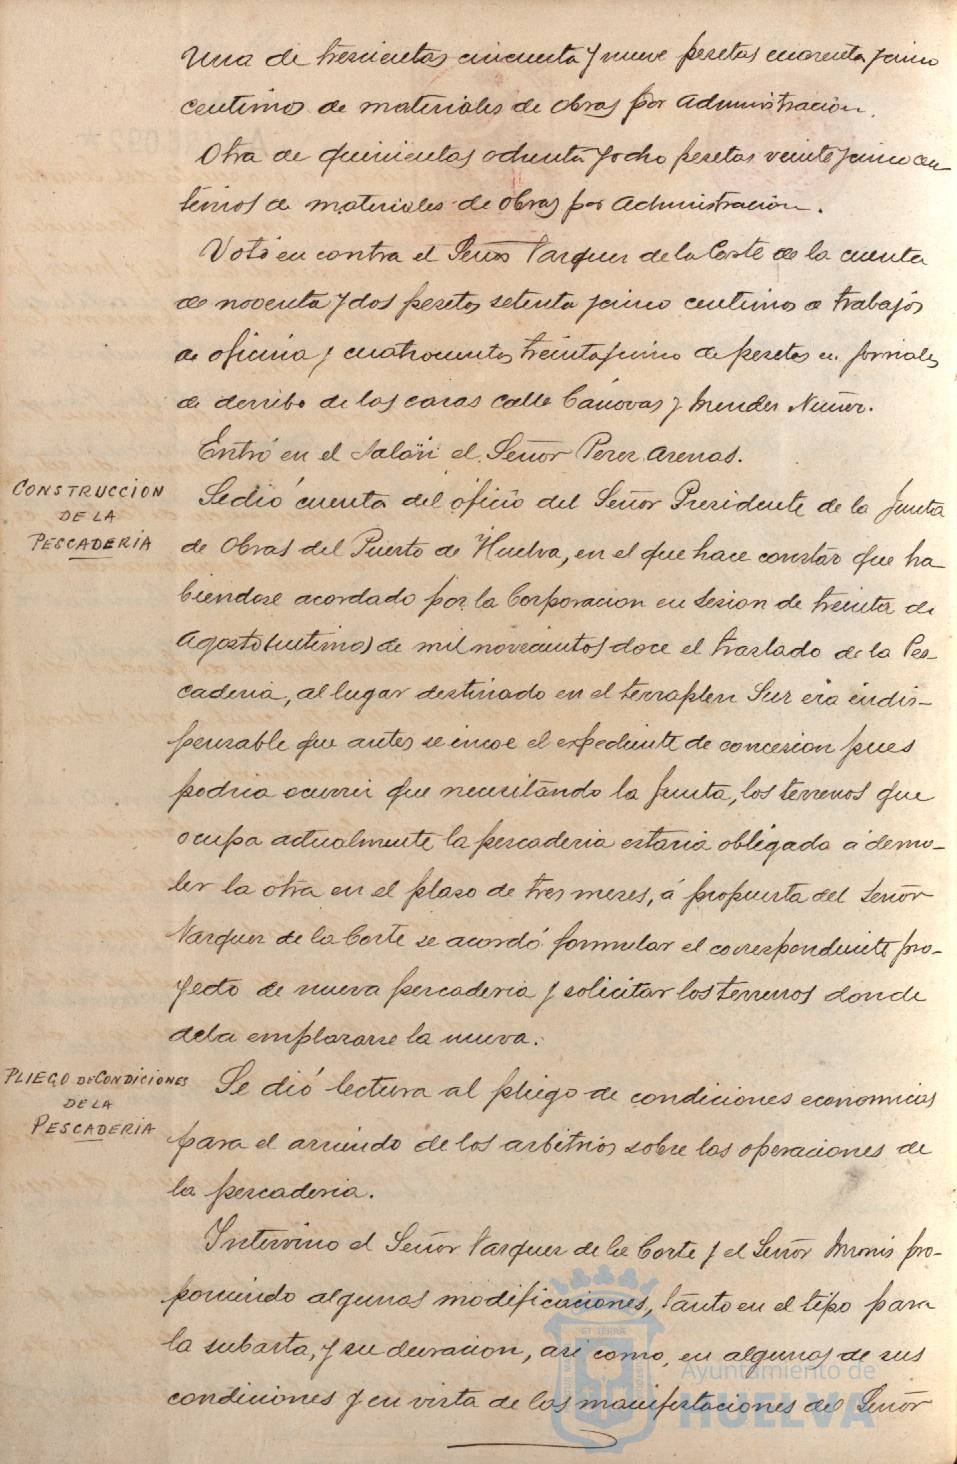 Una de trescientas cincuenta y nueve pesetas cuarenta y cinco
centimos de materiales de obras por Administración.
Otra de quinientas ochenta y ocho pesetas veinte y cinco cen-
timos de materiales de obras por Administración.
Votó en contra el Señor Vazquez de la Corte de la cuenta
de noventa y dos pesetas setenta y cinco centimos de trabajos
de oficina y cuatrocientas treinta y cinco de pesetas en jornales
de derribo de las casas calle Cánovas y Mendez Nuñez.
Entró en el Salón el Señor Perez Arenas.
CONSTRUCCION
DE LA
PESCADERIA
Se dió cuenta del oficio del Señor Presidente de la Junta
de Obras del Puerto de Huelva, en el que hace constar que ha
biendose acordado por la Corporacion en sesion de treinta de
Agosto (ultimo) de mil novecientos doce el traslado de la Pes-
caderia, al lugar destinado en el terraplen Sur era indis-
pensable que antes se incoe el expediente de concesion pues
podria ocurrir que necesitando la Junta, los terrenos que
ocupa actualmente la pescaderia estaria obligada á demo-
ler la otra en el plazo de tres meses, á propuesta del Señor
Vazquez de la Corte se acordó formular el correspondiente pro-
yecto de nueva pescaderia y solicitar los terrenos donde
deba emplazarse la nueva.
PLIEGO DE CONDICIONES
DE LA
PESCADERIA
Se dió lectura al pliego de condiciones economicas
para el arriendo de los arbitrios sobre las operaciones de
la pescaderia.
Intervino el Señor Vazquez de la Corte y el Señor Monis pro-
poniendo algunas modificaciones, tanto en el tipo para
la subasta, y su duracion, asi como, en algunas de sus
condiciones y en vista de las manifestaciones del Señor
Ayuntamiento de
HUELVA